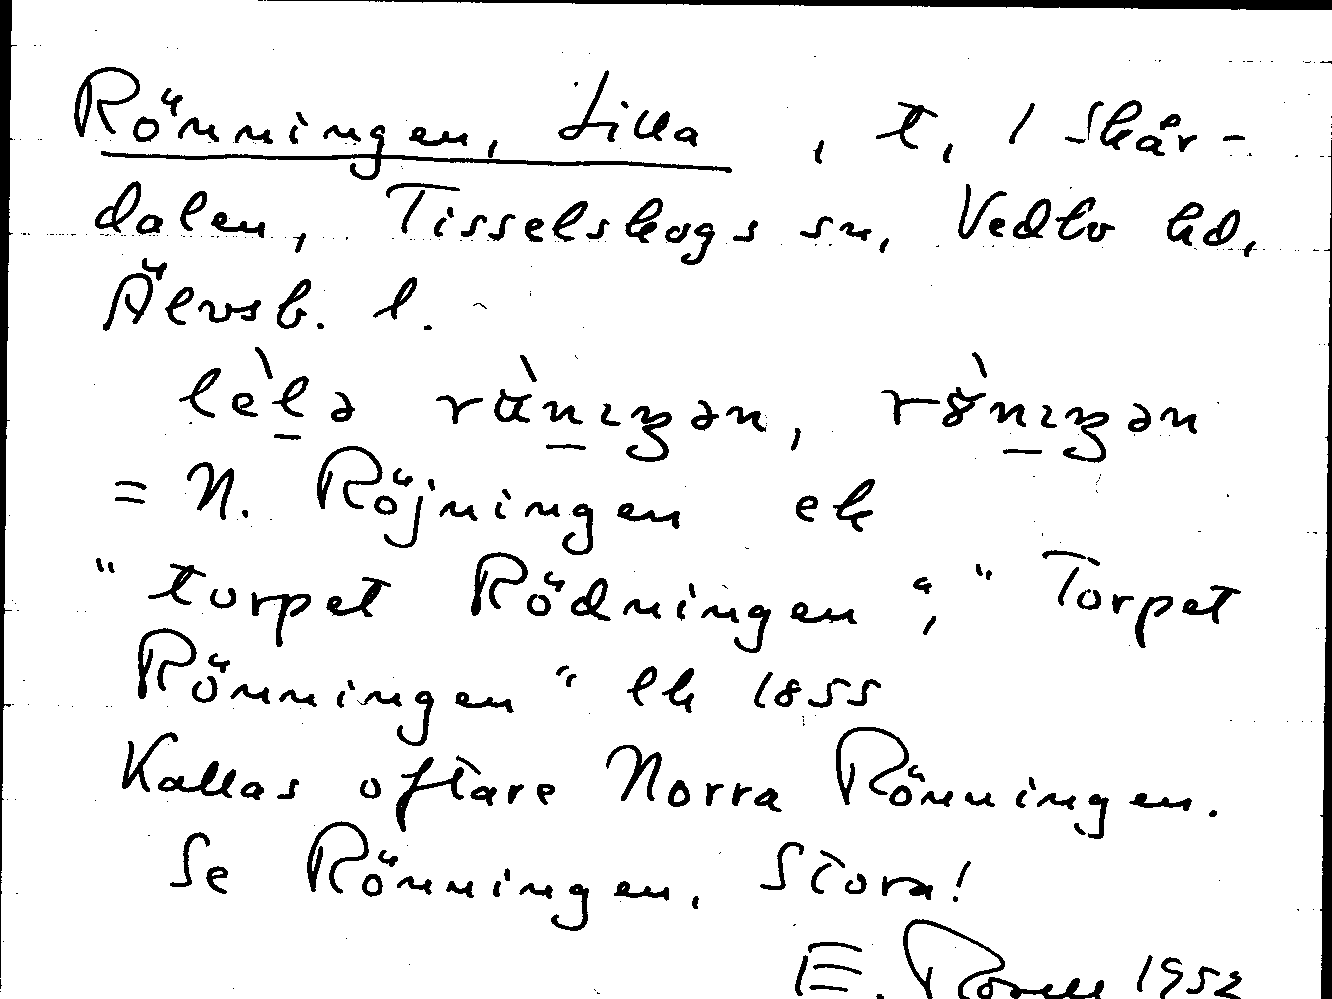 Rönningen, Lilla, t, 1 Skår-
dalen, Tisselskogs sn, Vedbo hd,
Älvsb. l.
lèlə rän̲ɪŋən, rön̲ɪŋən
= N. Röjningen ek
"torpet Rödningen", "Torpet
Rönningen" lk 1855
Kallas oftare Norra Rönningen.
Se Rönningen, Stora!
E. 1952